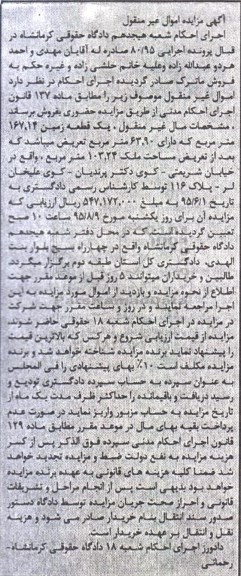 آگهی مزایده اموال غیر منقول
اجرای احکام شعبه هیجدهم دادگاه حقوقی کرمانشاه در
قبال پرونده اجرایی ۸۰/۹۵ صادره له آقایان مهدی و احمد
هردو عبدالله زاده وعلیه خانم خلشی زاده و غیره حکم به
فروش ماترک صادر گردیده اجرای احکام در نظر دارد
اموال غیر منقول موصوف زیر را مطابق ماده ۱۳۷ قانون
اجرای احکام مدنی از طریق مزایده حضوری بفروش برساند
، مشخصات مال غیر منقول ، یک قطعه زمین ۱۶۷,۱۴
متر مربع که دارای ۶۳,۹۰ متر مربع تعریض میباشد که
بعد از تعریض مساحت ملک ۱۰۳,۲۴ متر مربع ، واقع در
خیابان شریعتی - کوی دکتر پرندیان - کوی علیخان
لر - پلاک ۱۱۶ توسط کارشناس رسمی دادگستری به
تاریخ ۹۵/۶/۱ به مبلغ ۵۴۷,۱۷۲,۰۰۰ ریال ارزیابی که
مزایده آن برای روز یکشنبه مورخ ۹۵/۸/۹ ساعت ۱۰ صبح
تعیین گردیده است که در محل دفتر شعبه هیجدهم
دادگاه حقوقی کرمانشاه واقع در چهارراه بسیج بلوار بنت
الهدی دادگستری کل استان طبقه دوم برگزار میگردد
طالبین و خریداران میتوانند ۵ روز قبل از موعد مقرر جهت
اطلاع از نحوه مزایده و بازدید از اموال مورد مزایده به این
اجرا مراجعه نمایند و در روز و ساعت مقرر جهت شرکت
در مزایده در اجرای احکام شعبه ۱۸ حقوقی حاضر شوند
مزایده از قیمت ارزیابی شروع و هرکس که بالاترین قیمت
را پیشنهاد نماید برنده مزایده شناخته خواهد شد و برنده
مزایده مکلف است ۱۰٪ بهای پیشنهادی را فی المجلس
به عنوان سپرده به حساب سپرده دادگستری تودیع و
رسید دریافت و باقیمانده را حداکثر ظرف مدت یک ماه از
تاریخ مزایده به حساب مزبور واریز نماید در صورت عدم
پرداخت بقیه بهای مال در موعد مقرر مطابق ماده ۱۲۹
قانون اجرای احکام مدنی سپرده فوق الذکر پس از کسر
هزینه مزایده به نفع دولت ضبط و مزایده تجدید خواهد
شد ضمنا کلیه هزینه های قانونی به عهده برنده مزایده
خواهد بود بدیهی است پس از انجام مراحل و تشریفات
قانونی و احراز صحت جریان مزایده توسط دادگاه دستور
صدور سند انتقال بنام خریدار صادر می شود و هزینه
نقل و انتقال بر عهده خریدار است.
دادورز اجرای احکام شعبه ۱۸ دادگاه حقوقی کرمانشاه-
رحمانی